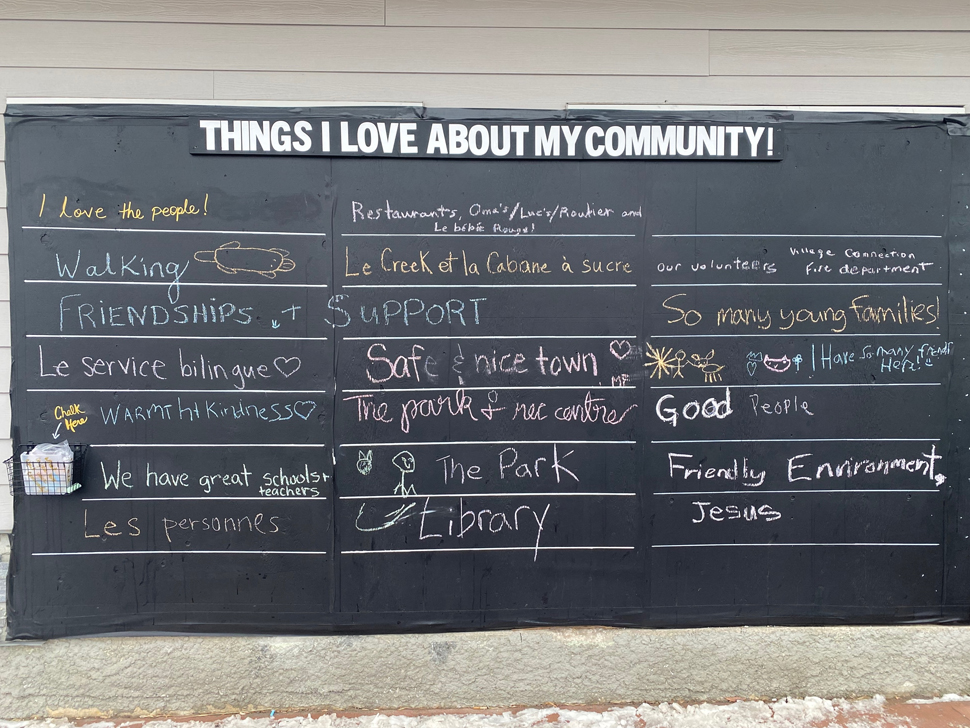 THINGS I LOVE ABOUT MY COMMUNITY!
I love the people!
Walking
FRIENDSHIPS + SUPPORT
Le service bilingue
Chalk
Here
WARMTH + KINDNESS
We have great schools +
teachers
Les personnes
Restaurants, Oma's/Luc's/Routier and
Le bébé Rouge!
Le Creek et la Cabane à sucre
Safe & nice town
MF
The park & rec centre
The Park
Library
our volunteers
Village Connection
fire department
So many young families!
I Have So many friends
Here!
Good People
Friendly Environment
Jesus